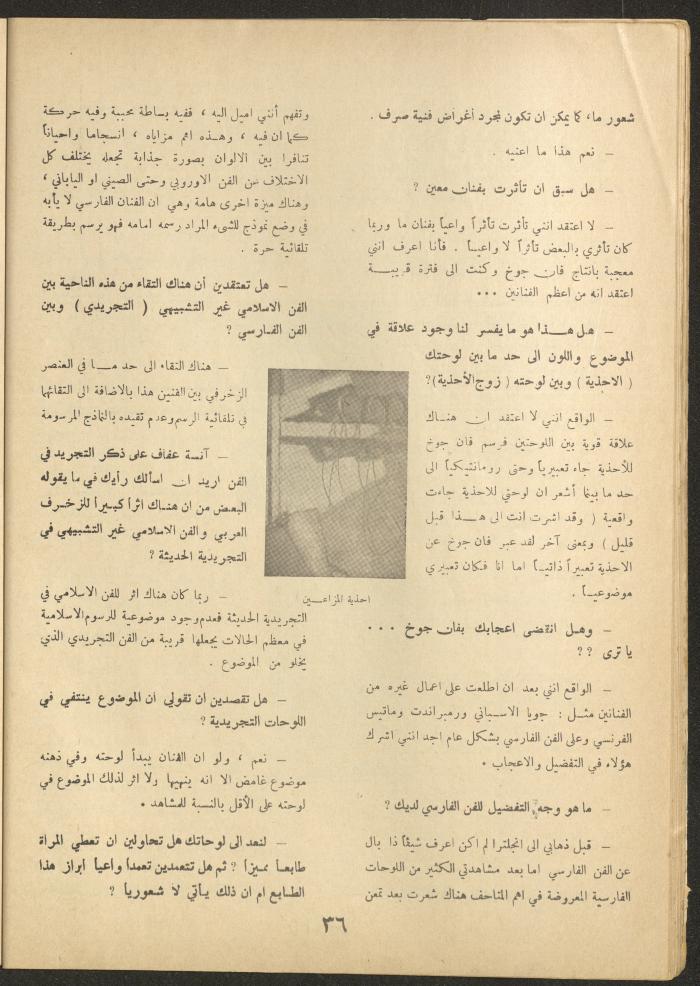 شعور ما، كما يمكن ان تكون لمجرد أغراض فنية صرف .
– نعم هذا ما اعنيه .
– هل سبق ان تأثرت بفنان معين ؟
– لا اعتقد انني تأثرت تأثراً واعياً بفنان ما وربما
كان تأثري بالبعض تأثراً لا واعيـاً . فأنا اعرف انني
معجبة بانتاج فان جوخ وكنت الى فترة قريبـــة
اعتقد انه من اعظم الفنانين ...
– هـل هـــذا هو ما يفسر لنا وجود علاقة في
الموضوع واللون الى حد ما بين لوحتك
( الاحذية ) وبين لوحته ( زوج الأحذية)؟
– الواقع انني لا اعتقد ان هنــاك
علاقة قوية بين اللوحتين فرسم فان جوخ
للأحذية جاء تعبيرياً وحتى رومانتيكياً الى
حد ما بينما أشعر ان لوحتي للاحذية جاءت
واقعية ( وقد اشرت انت الى هـــذا قبل
قليل ) وبمعنى آخر لقد عبر فان جوخ عن
الاحذية تعبيراً ذاتيـاً اما انا فكان تعبيري
موضوعيـاً .
– وهـل انقضى اعجابك بفان جوخ ...
يا ترى ؟؟
– الواقع انني بعد ان اطلعت على اعمال غيره من
الفنانين مثـل : جويا الاسباني ورمبراندت وماتيس
الفرنسي وعلى الفن الفارسي بشكل عام اجد انني اشرك
هؤلاء في التفضيل والاعجاب .
– ما هو وجه التفضيل للفن الفارسي لديك ؟
– قبل ذهابي الى انجلترا لم اكن اعرف شيئاً ذا بال
عن الفن الفارسي اما بعد مشاهدتي الكثير من اللوحات
الفارسية المعروضة في اهم المتاحف هناك شعرت بعد تمعن
وتفهم أنني اميل اليه ، ففيه بساطة محببة وفيه حركة
كما ان فيه ، وهــذه اهم مزاياه ، انسجاما واحياناً
تنافرا بين الالوان بصورة جذابة تجعله يختلف كل
الاختلاف عن الفن الاوروبي وحتى الصيني او الياباني ،
وهناك ميزة اخرى هامة وهي ان الفنان الفارسي لا يأبه
في وضع نموذج للشىء المراد رسمه امامه فهو يرسم بطريقة
تلقائية حرة .
– هل تعتقدين أن هناك التقاء من هذه الناحية بين
الفن الاسلامي غير التشبيهي ( التجريدي ) وبين
الفن الفـارسي ؟
– هناك التقاء الى حد مــا في العنصر
الزخرفي بين الفنين هذا بالاضافة الى التقائهما
في تلقائية الرسم وعدم تقيده بالنماذج المرسومة
– آنسة عفاف على ذكر التجريد في
الفن اريد ان اسألك رأيك في ما يقوله
البعض من ان هنـاك اثراً كبيراً للزخرف
العربي والفن الاسلامي غير التشبيهي في
التجريدية الحديثة ؟
احذية المزارعــين
– ربما كان هناك اثر للفن الاسلامي في
التجريدية الحديثة فعدم وجود موضوعية للرسوم الاسلامية
في معظم الحالات يجعلها قريبة من الفن التجريدي الذي
يخلو من الموضوع .
– هل تقصدين ان تقولي ان الموضوع ينتفي في
اللوحات التجريدية ؟
– نعم ، ولو ان الفنان يبدأ لوحته وفي ذهنه
موضوع غامض الا انه ينهيها ولا اثر لذلك الموضوع في
لوحته على الأقل بالنسبة للمشاهد .
– لنعد الى لوحاتك هل تحاولين ان تعطي المرأة
طابعـاً مميزاً ؟ ثم هل تتعمدين تعمداً واعيا أبراز هذا
الطـابع ام ان ذلك يـأتي لا شعوريا ؟
٣٦